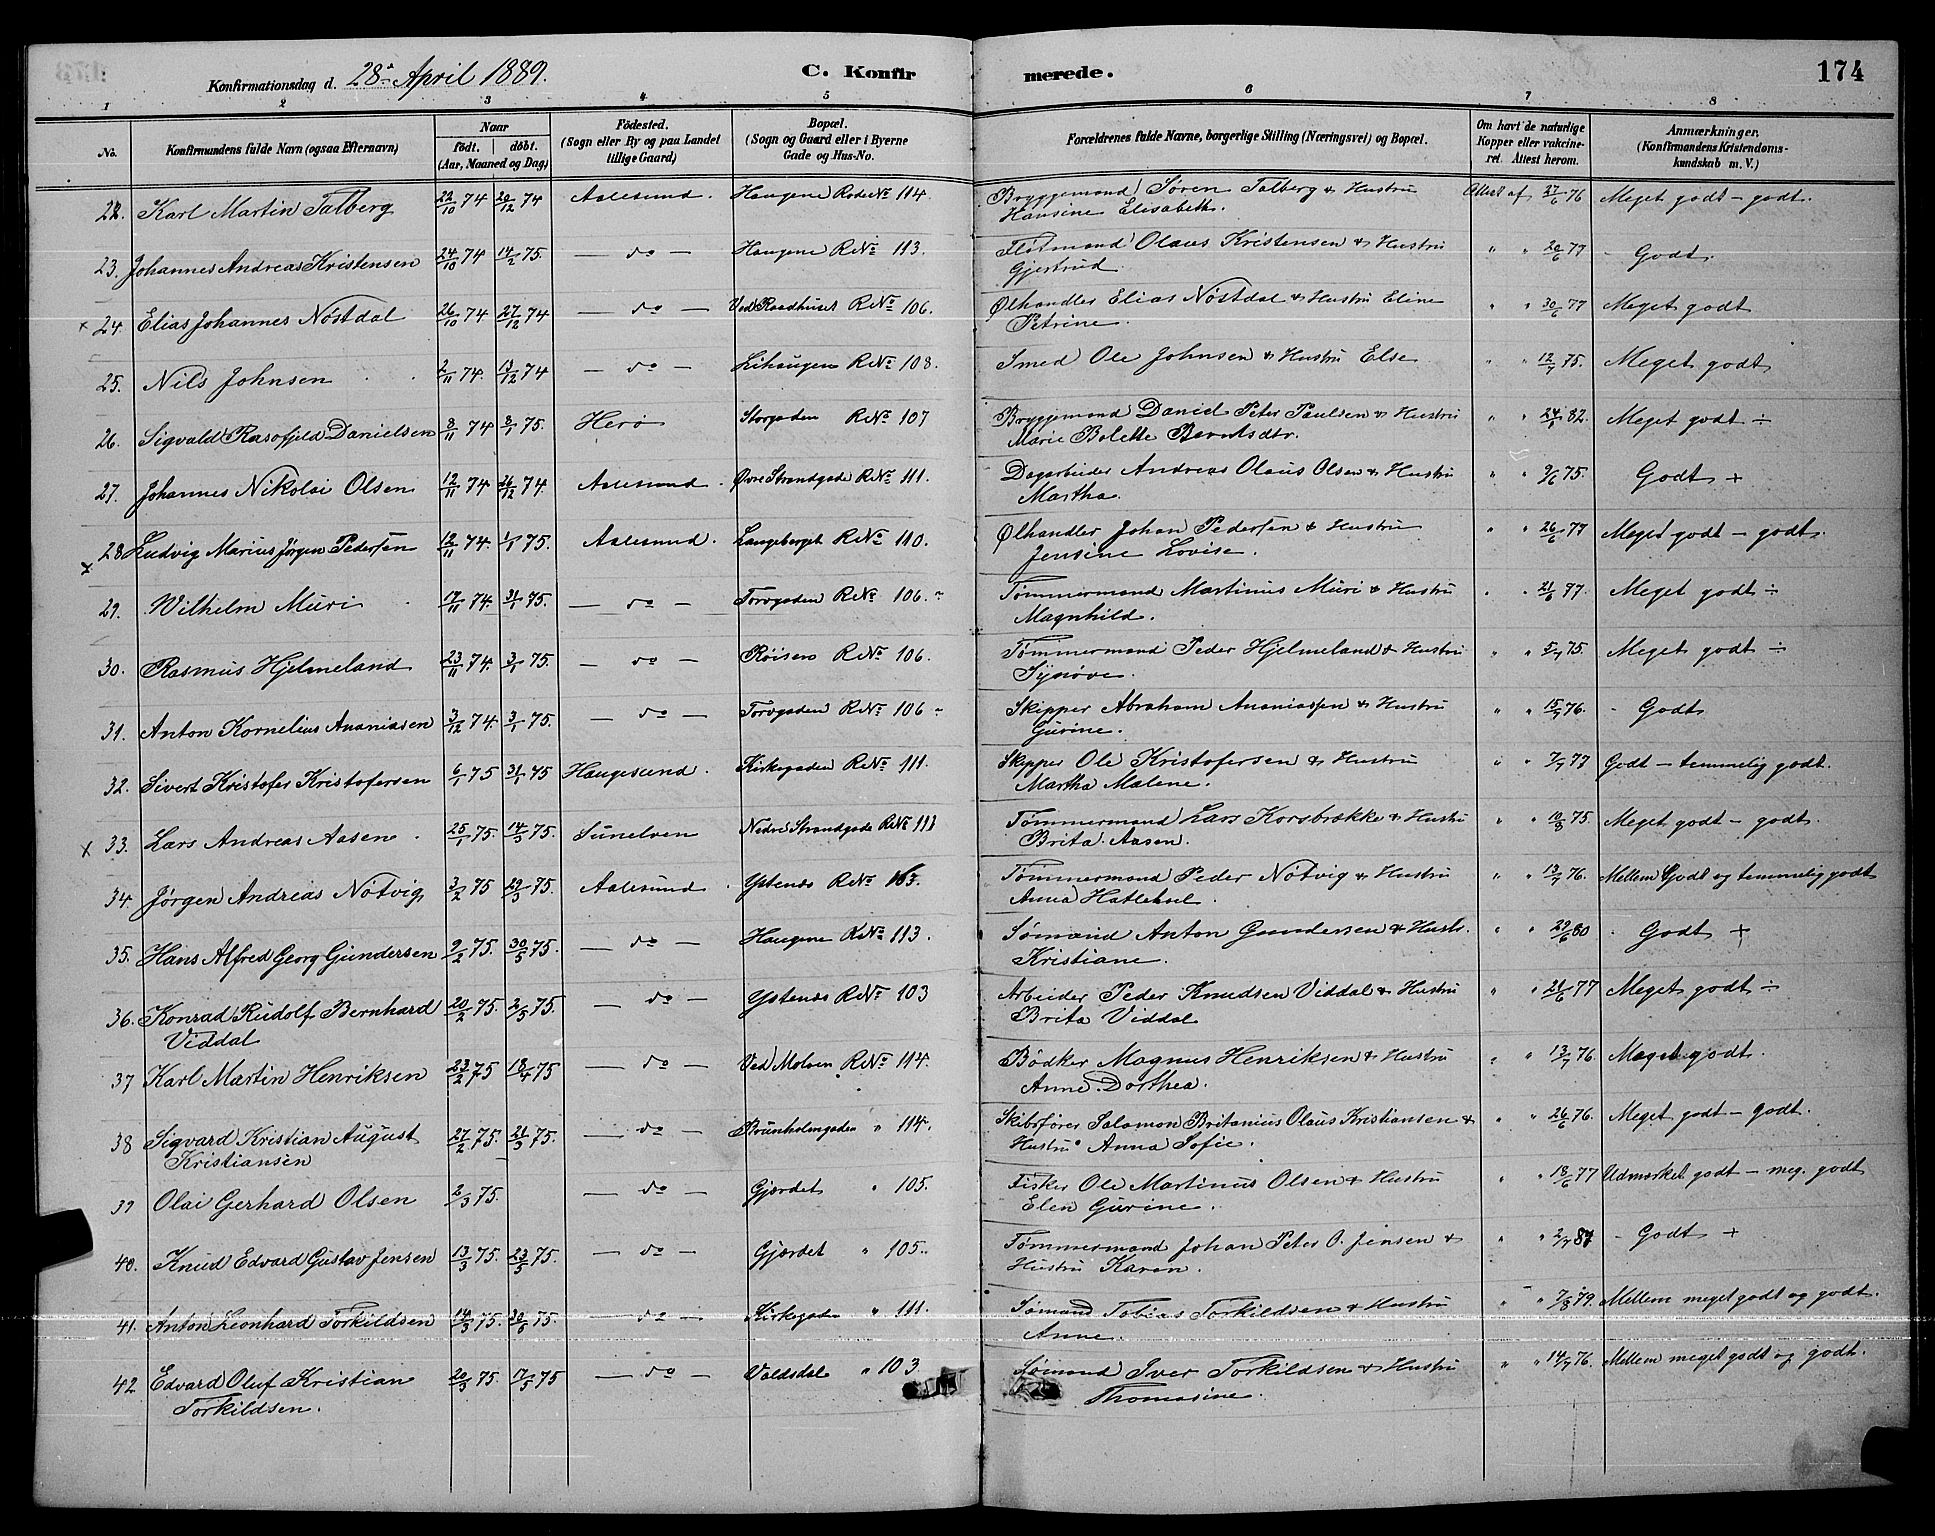 Konfirmationsdag d. 28de April 1889. C. Konfirmerede. 174
1 2 3 4 5 6 7 8
No. Konfirmandens fulde Navn (ogsaa Efternavn) Naar født. døbt. (Aar, Maaned og Dag) Fødested. (Sogn eller By og paa Landet tillige Gaard) Bopæl. (Sogn og Gaard eller i Byerne Gade og Hus-No. Forældrenes fulde Navne, borgerlige Stilling (Næringsvei) og Bopæl. Om havt de naturlige Kopper eller vakcineret. Attest herom. Anmærkninger. (Konfirmandens Kristendomskundskab m. V.)
22. Karl Martin Talberg 22/10 74 20/12 74 Aalesund. Haugene Rode No 114. Bryggemand Søren Talberg & Hustru
Hansine Elisabeth. Attest af 27/6 76 Meget godt - godt.
23. Johannes Andreas Kristensen 24/10 74 14/2 75. — do — Haugene R No 113. Flødmand Olaus Kristensen & Hustru
Gjertrud. " " 20/6 77 Godt.
x 24. Elias Johannes Nøstdal 26/10 74 27/12 74 — do — Ved Raadhuset R No 106. Ølhandler Elias Nøstdal & Hustru Eline
Petrine. " " 30/6 77 Meget godt
25. Nils Johnsen 2/11 74. 13/12 74 — do — Lihaugen R No 108. Smed Ole Johnsen & Hustru Else " " 12/7 75. Meget godt
26. Sigvald Danielsen 8/11 74 8/1 75. Herø Storgaden R No 107 Bryggemand Daniel Peter Paulsen & Hustru
Marie Bolette Berntsdtr. " " 24/1 82. Meget godt ÷
27. Johannes Nikolai Olsen 12/11 74 26/12 74. Aalesund. Øvre Strandgade R No 111. Dagarbeider Andreas Olaus Olsen & Hustru
Martha. " " 9/6 75. Godt +
x 28. Ludvig Marius Jørgen Pedersen 12/11 74. 1/1 75. Aalesund. Langeberget R No 110. Ølhandler Johan Pedersen & Hustru
Jensine Lovise. " " 26/6 77 Meget godt - godt.
29. Wilhelm Muri 17/11 74. 31/1 75. — do — Torvgaden R No 106. Tømmermand Martinus Muri & Hustru
Magnhild. " " 21/6 77. Meget godt ÷
30. Rasmus Hjelmeland 23/11 74. 3/1 75. — do — Røisen R No 106. Tømmermand Peder Hjelmeland & Hustru
Synøve. " " 5/7 75. Meget godt ÷
31. Anton Kornelius Ananiasen 3/12 74. 3/1 75. — do — Torvgaden R No 106 Skipper Abraham Ananiassen & Hustru
Gurine. " " 15/7 76. - Godt
32. Sivert Kristofer Kristofersen 6/1 75 31/1 75 Haugesund. Kirkegaden R No 111. Skipper Ole Kristofersen & Hustru
Martha Malene. " " 7/7 77 Godt - temmelig godt.
x 33. Lars Andreas Aasen. 25/1 75. 14/3 75. Sunelven Nedre Strandgade R No 111 Tømmermand Lars Korsbrække & Hustru
Brita Aasen. " " 10/8 75. Meget godt - godt.
34. Jørgen Andreas Nøtvig 3/2 75 29/3 75. Aalesund. Ystenes R No 103. Tømmermand Peder Nøtvig & Hustru
Anna Hatlehol. " " 13/7 76. Mellem Godt og temmelig godt
35. Hans Alfred Georg Gundersen 9/2 75. 30/5 75. — do — Haugene R No 113. Sømand Anton Gundersen & Hustr.
Kristiane. " " 29/6 80 - Godt +
36. Konrad Rudolf Bernhard
Viddal 20/2 75. 2/5 75. — do — Ystenes R No 103 Arbeider Peder Knudsen Viddal & Hustru
Brita Viddal " " 21/6 77 Meget godt ÷
37 Karl Martin Henriksen 23/2 75 18/4 75 — do — Ved Molven R No 114. Bødker Magnus Henriksen & Hustru
Anne Dorthea. " " 13/7 76 Meget godt.
38 Sigvard Kristian August
Kristiansen 27/2 75. 21/3 75. — do — Brunholmgaden " 114. Skibsfører Salomon Britanius Olaus Kristiansen &
Hustru Anna Sofie. " " 26/6 76. Meget godt - godt.
39 Olai Gerhard Olsen 2/3 75. — do — Gjærdet " 105. Fisker Ole Martinus Olsen & Hustru
Elen Gurine. " " 18/6 77 Udmærket godt - meg. godt
40. Knud Edvard Gustav Jensen 13/3 75. 23/5 75. — do — Gjærdet " 105. Tømmermand Johan Peter O. Jensen &
Hustru Karen. " " 2/7 87 - Godt +
41. Anton Leonhard Torkildsen 14/3 75. 30/5 75. — do — Kirkegaden " 111. Sømand Tobias Torkildsen & Hustru
Anne. " " 7/8 79. Mellem meget godt og godt.
42 Edvard Oluf Kristian
Torkildsen. 20/3 75. 7/5 75 — do — Voldsdal " 103. Sømand Iver Torkildsen & Hustru
Thomasine. " " 14/7 76. Mellem meget godt og godt.